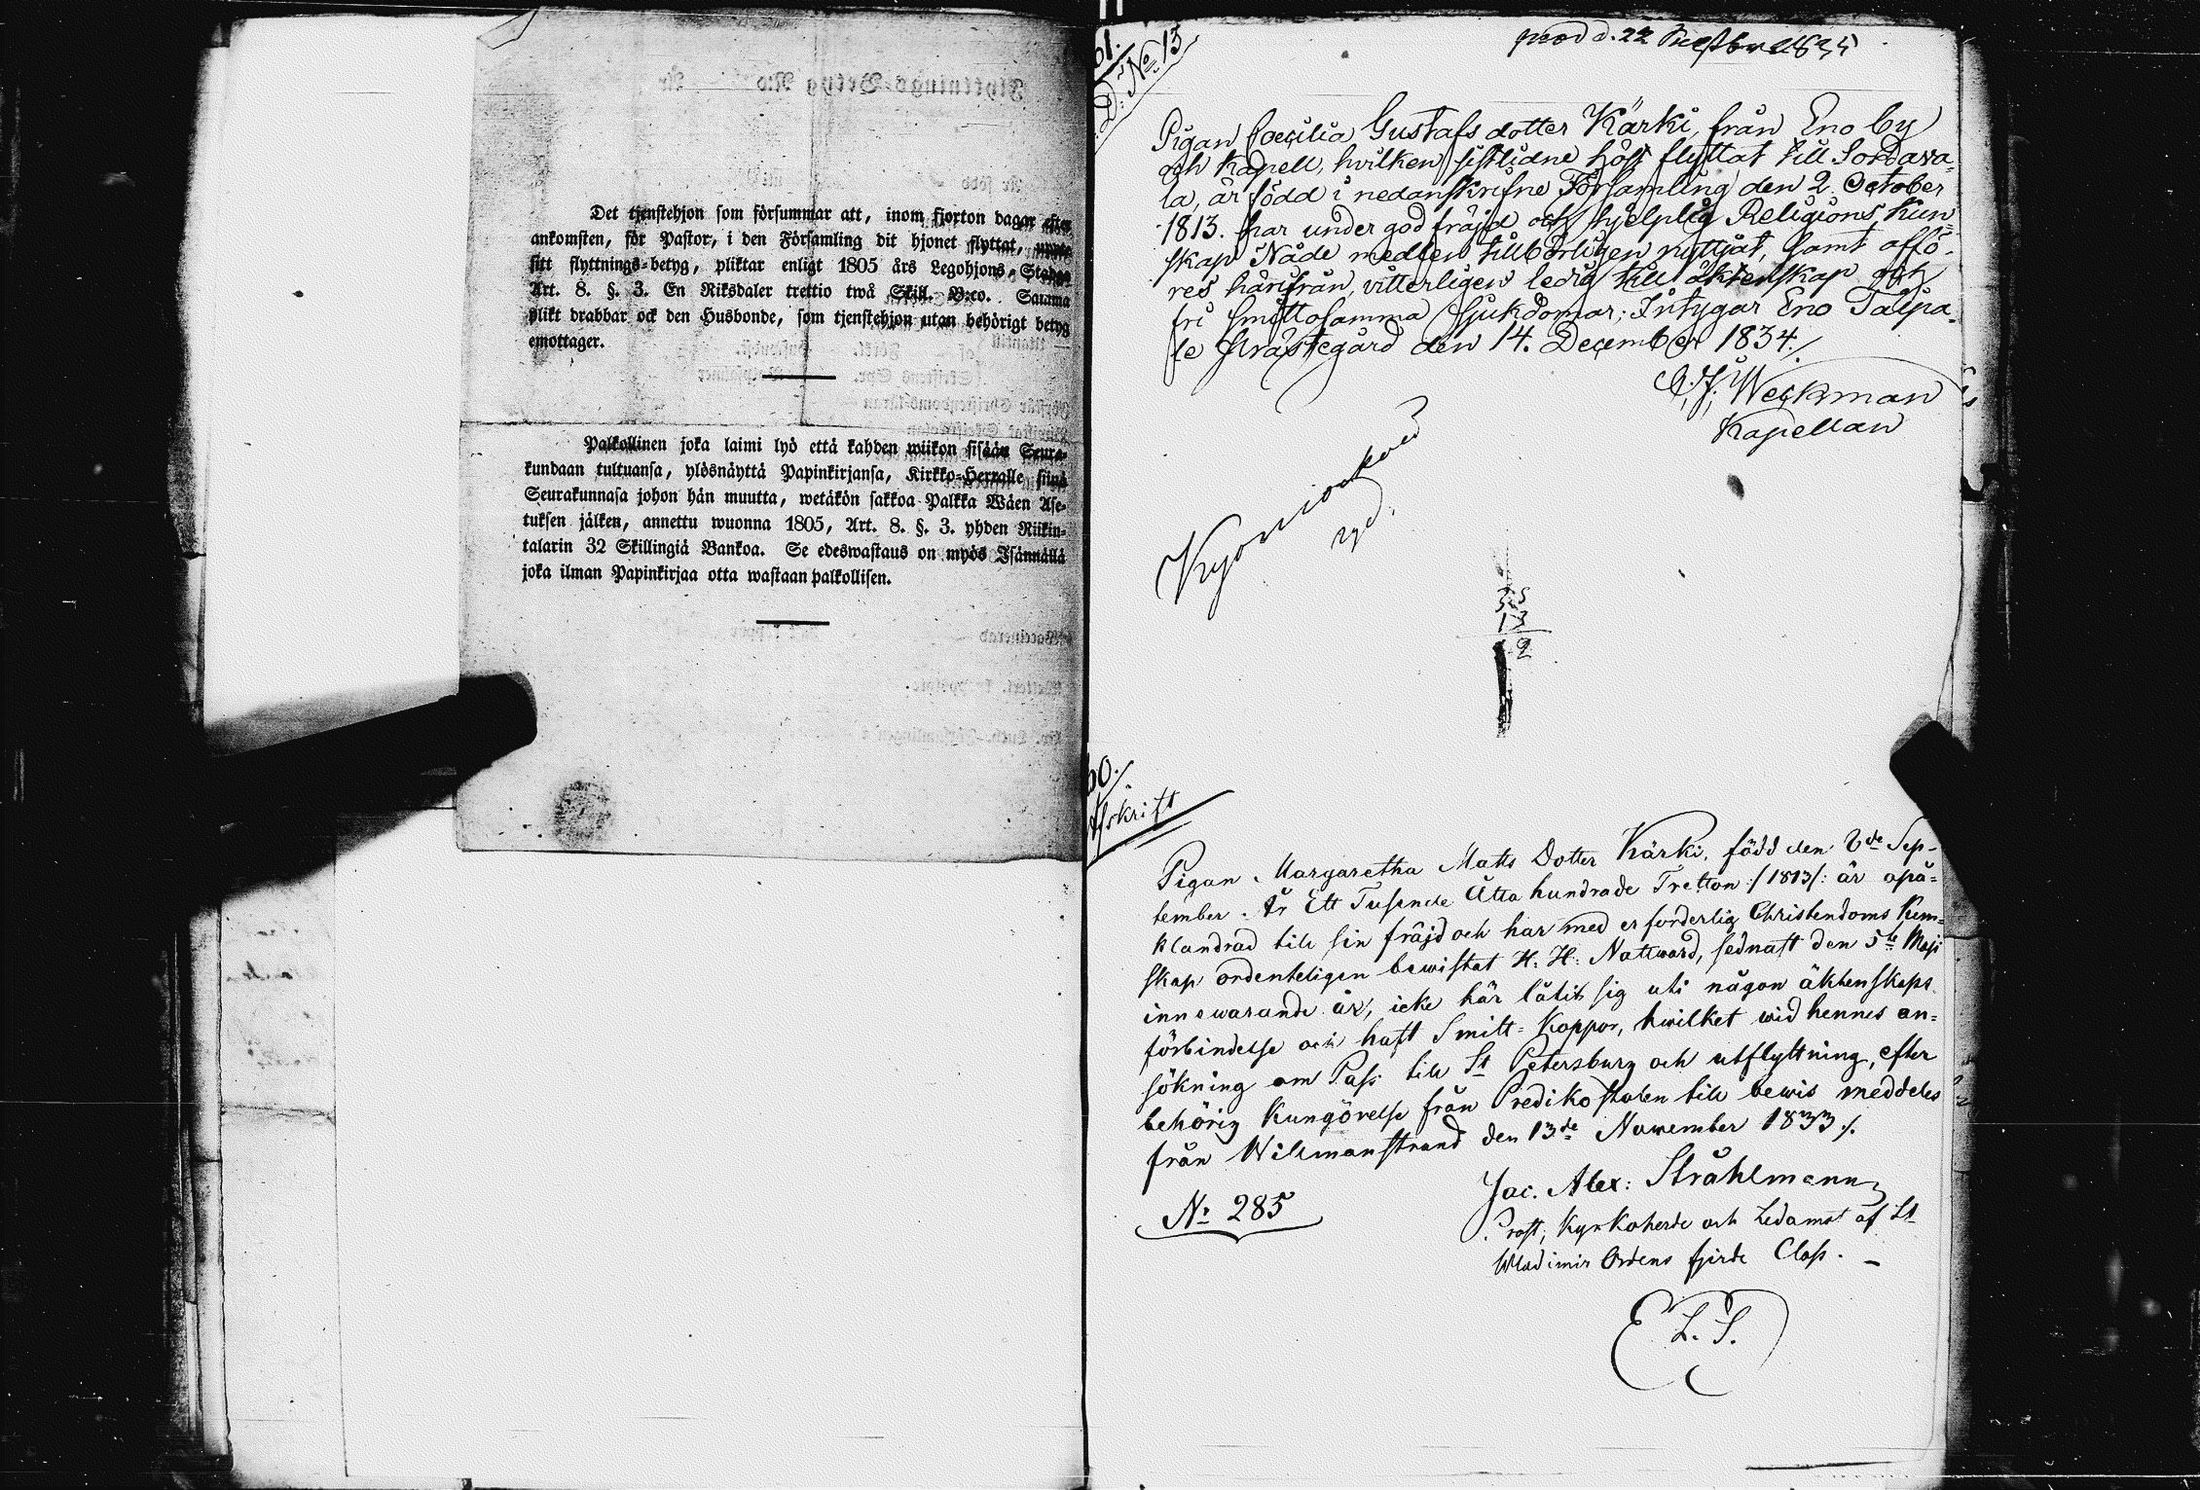 Det tjenstehjon som försummar att, inom fjorton dagar efter
ankomsten, för Pastor, i den Församling dit hjonet flyttat,
sitt flyttnings-betyg, pliktar enligt 1805 års Legohjons-Stadga
Art. 8. §. 3. En Riksdaler trettio twå Skill. B:co. Samma
plikt drabbar ock den Husbonde, som tjenstehjon utan behörigt betyg
emottager.
Palkollinen joka laimi lyö että kahden wiikon sisään Seura-
kundaan tultuansa, ylösnäyttä Papinkirjansa, Kirkko-Herralle siinä
Seurakunnasa johon hän muutta, wetäkön sakkoa Palkka Wäen Ase-
tuksen jälken, annettu wuonna 1805, Art. 8. §. 3. yhden Riikin-
talarin 32 Skillingiä Bankoa. Se edeswastaus on myös Isännällä
joka ilman Papinkirjaa otta wastaan palkollisen.
d. 22
61.
D: No 13
Pigan Caecilia Gustafs dotter Kärki, från Eno by
och Kapell, hvilken sistlidne höst flyttat till Sordava-
la, är född i nedanskrifne Församling den 2. October
1813. har under god fräjd och hjelplig Religions Kun-
skap Nåde medlen tillbörligen nyttjat, samt affö-
res härifrån, vitterligen ledig till äktenskap och
fri smittosamma sjukdomar; Intygar Eno Talpa-
le Prästegård den 14. December 1834./.
Weckman
Kapellan
13
2
60./
Afskrift
Pigan Margaretha Matts Dotter Kärki, född den 2de Sep-
tember År Ett Tusende Åtta hundrade Tretton /:1813/: är opå-
klandrad till sin fräjd och har med erforderlig Christendoms Kun-
skap ordenteligen bewistat H. H. Nattward, sednast den 5te Maji
innewarande år, icke här låtit sig uti någon äktenskaps
förbindelse och haft Smitt-Koppor, hwilket wid hennes an-
sökning om Pass till St Petersburg och utflyttning, efter
behörig Kungörelse från Predikostolen till bewis meddeles
från Wilmanstrand den 13de November 1833./.
Jac. Alex: Stråhlmann
Prost, Kyrkoherde och Ledamot af St
Wladimir Ordens fjerde Class. –
No 285
L. S.